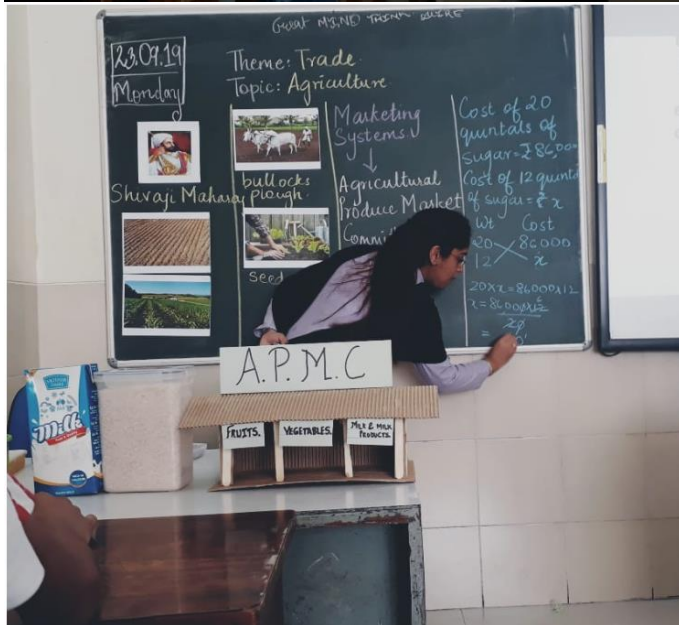 Great MIND THINK
23.09.19
Monday
Theme: Trade
Topic: Agriculture
Shivaji Maharaj
bullocks
plough
seed
Marketing
Systems
↓
Agricultural
Produce Market
Cost of 20
quintals of
sugar = ₹ 86,000
Cost of 12 quint
of sugar = ₹ x
Wt Cost
20 86000
12 x
20 × x = 86000 × 12
x = 86000 × 12
20
=
A.P.M.C
FRUITS.
VEGETABLES.
MILK & MILK
PRODUCTS.
Milk